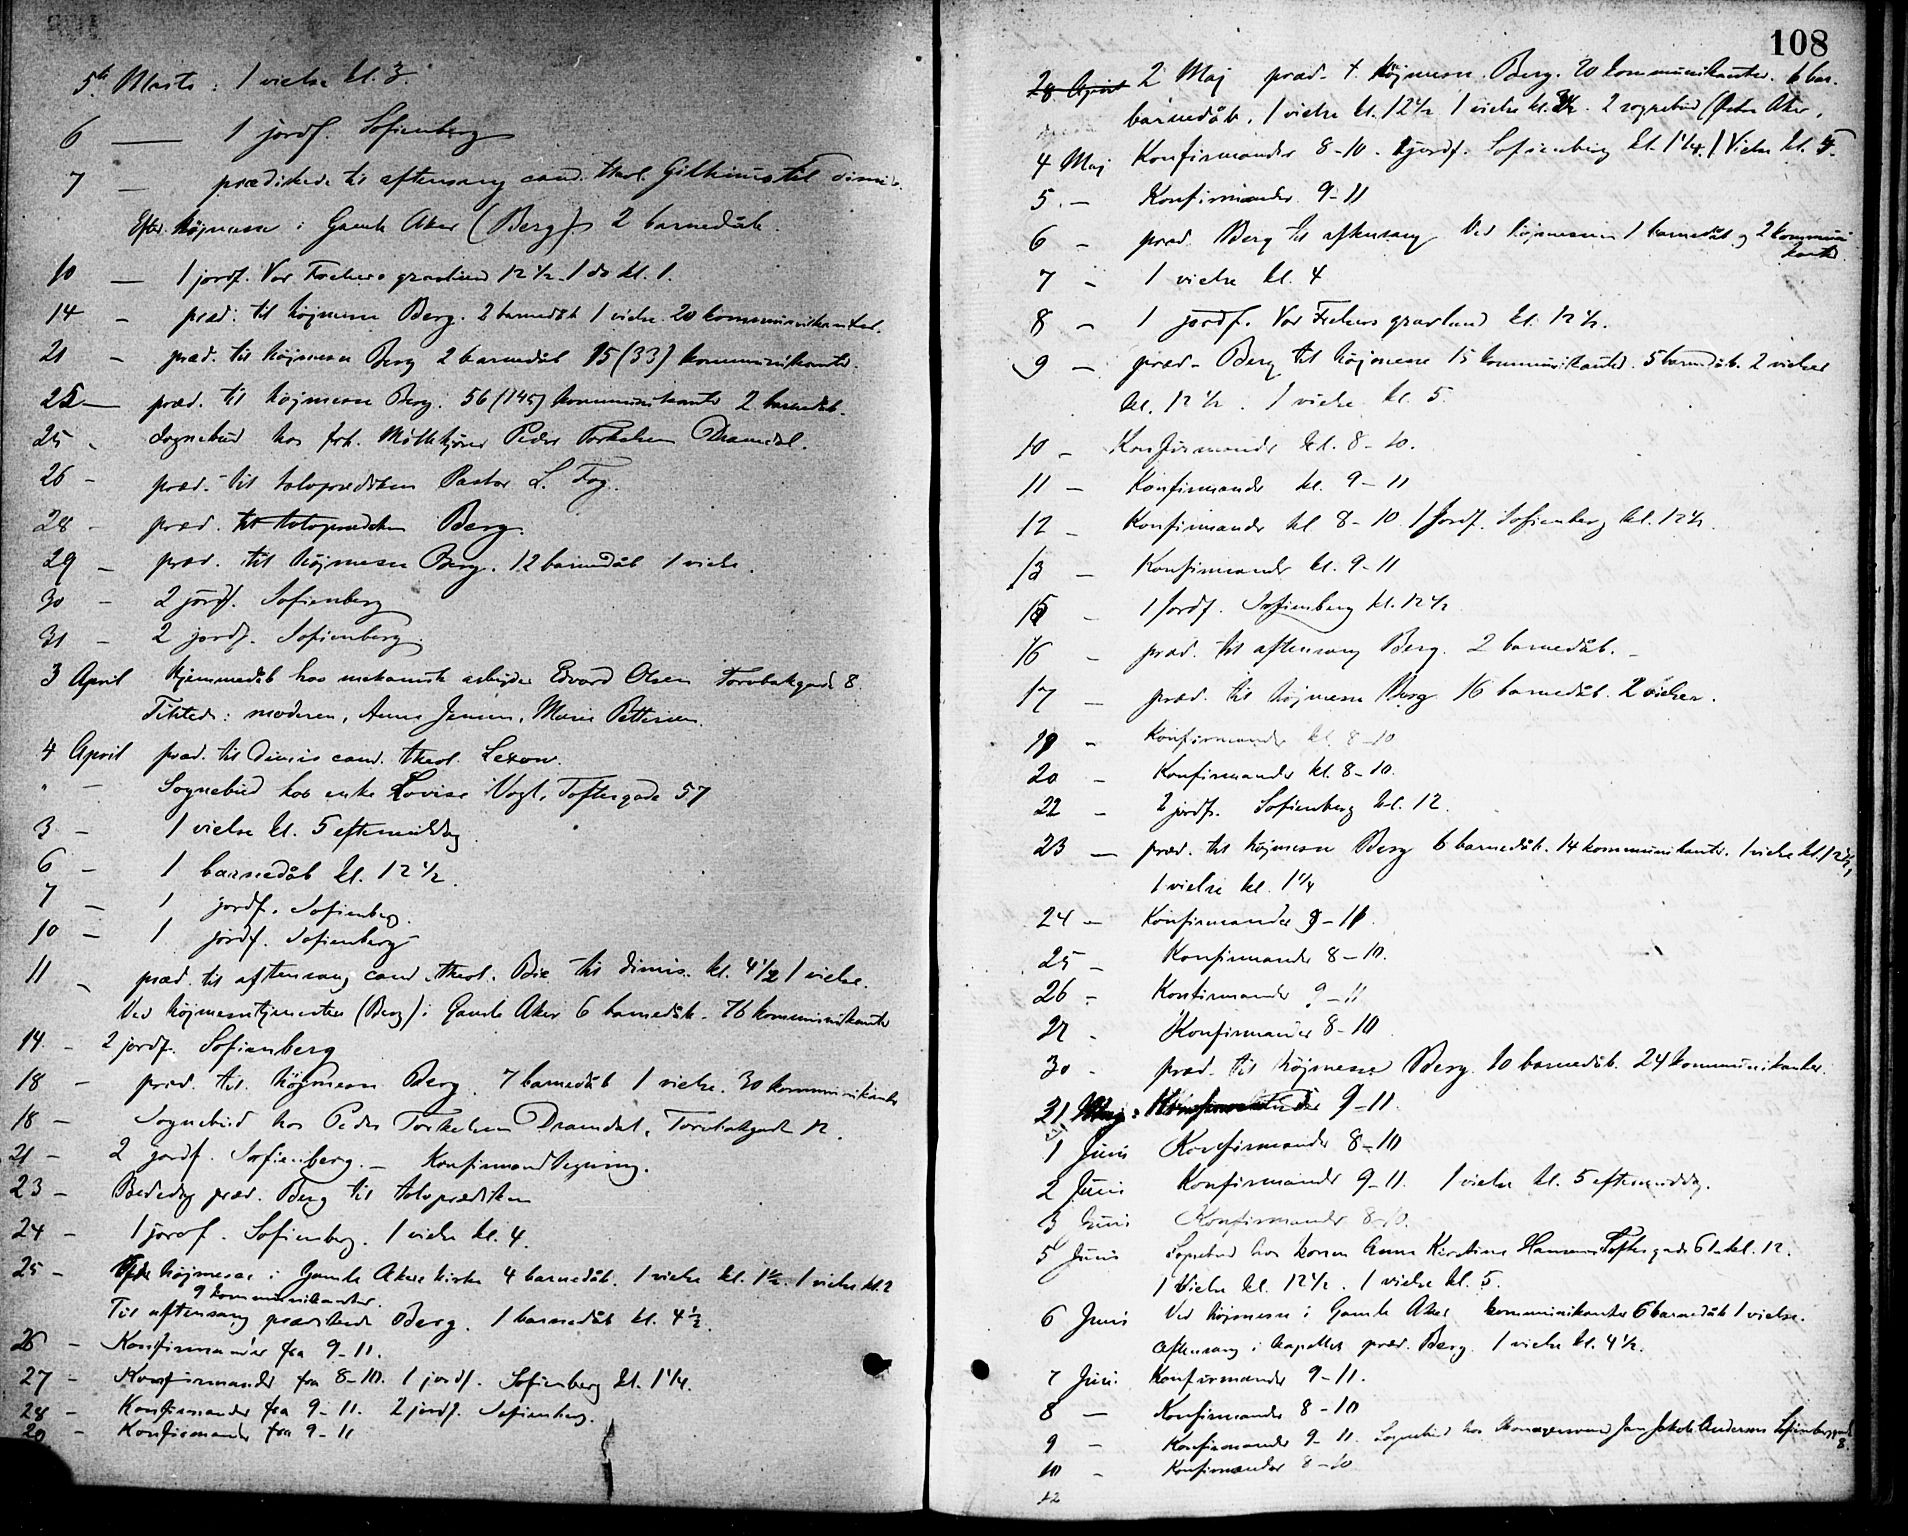 5te Marts : 1 vielse kl. 3.
6 — 1 jordf. Sofienberg
7 — prædikede til aftensang cand. theol. til dimis.
Efter højmesse i Gamle Aker (Berg) 2 barnedåb.
10 — 1 jordf. Vor Frelsers gravlund 12 1/2. 1 do kl. 1.
14 - præd. til højmesse Berg. 2 barnedåb 1 vielse. 20 kommunikanter.
21 - præd. til højmesse Berg 2 barnedåb 15 (33) kommunikanter.
25 — præd. til højmesse Berg. 56 (145) kommunikanter 2 barnedåb.
25 - Sognebud hos frh. Peder Torkelsen Dramdal.
26 - præd. til tolvprædiken Pastor L. Fog.
28 - præd. til tolvprædiken Berg.
29 - præd. til højmesse Berg. 12 barnedåb 1 vielse.
30 - 2 jordf. Sofienberg
31 - 2 jordf. Sofienberg.
3 April Hjemmedåb hos mekanisk arbejder Edvard Olsen Torvbakgade 8.
Tilstede: moderen, Anna Jensen, Marie Pettersen.
4 April præd. til Dimis cand. theol. Lexow.
" - Sognebud hos enke Lovise Vogt, Toftesgade 57
3 - 1 vielse kl. 5 eftermiddag
6 - 1 barnedåb kl. 12 1/2.
7 - 1 jordf. Sofienberg.
10 - 1 jordf. Sofienberg
11 - præd. til aftensang cand. theol. Bie til dimis. kl. 4 1/2 1 vielse.
Ved højmessetjenesten (Berg) i Gamle Aker 6 barnedåb. 76 kommunikanter
14. - 2 jordf. Sofienberg
18 - præd. til højmesse Berg. 7 barnedåb 1 vielse. 30 kommunikanter
18 - Sognebud hos Peder Torkelsen Dramdal, Torvbakgade 12.
21 - 2 jordf. Sofienberg. — Konfirmandtegning.
23 - Bededag præd. Berg til tolvprædiken
24 - 1 jordf. Sofienberg. 1 vielse kl. 4.
25 - Efter højmesse i Gamle Akers kirke 4 barnedåb. 1 vielse kl. 1 1/2. 1 vielse kl. 2
9 kommunikanter.
Til aftensang prædikede Berg. 1 barnedåb kl. 4 1/2.
26 - Konfirmander fra 9-11.
27 - Konfirmander fra 8-10. 1 jordf. Sofienberg kl. 1 1/4.
28 - Konfirmander fra 9-11. 2 jordf. Sofienberg.
29 - Konfirmander fra 9-11
108
28 April 2 Maj præd. t. Højmesse Berg. 20 kommunikanter. 6 bar.
barnedåb, 1 vielse kl. 12 1/2 1 vielse kl. 2 sognebud (Østre Aker.
4 Maj Konfirmander 8-10. jordf. Sofienberg kl. 1 1/4. 1 Vielse kl. 5.
5. - Konfirmander 9-11
6 - præd. Berg til aftensang Ved højmessen 1 barnedåb og 2 kommuni
kanter.
7 - 1 vielse kl. 4
8 - 1 jordf. Vor Frelsers gravlund kl. 12 1/2.
9 - præd. Berg til højmesse 15 kommunikanter. 5 barnedåb. 2 vielser
kl. 12 1/2. 1 vielse kl. 5
10 - Konfirmander kl. 8-10.
11 - Konfirmander kl. 9-11
12 - Konfirmander kl 8-10. 1 Jordf. Sofienberg kl. 12 1/2.
13 - Konfirmander kl. 9-11
15 1 Jordf. Sofienberg kl. 12 1/2
16 - præd. til aftensang Berg. 2 barnedåb. -
17 - præd. til højmesse Berg 16 barnedåb. 2 vielser.
19 - Konfirmander kl. 8-10
20 - Konfirmander kl. 8-10.
22 - 2 jordf. Sofienberg kl. 12.
23 — præd. til højmesse Berg 6 barnedåb. 14 kommunikanter. 1 vielse kl. 12 1/2,
1 vielse kl. 1 1/4
24 - Konfirmander 9-11.
25 - Konfirmander 8-10.
26 - Konfirmander 9-11
27 - Konfirmander 8-10
30 - præd. til højmesse Berg. 10 barnedåb. 24 kommunikanter.
31 Maj: Konfirmander 9-11.
1 Juni Konfirmander 8-10
2 Juni Konfirmander 9-11. 1 vielse kl. 5 eftermiddag.
3 Juni Konfirmander 8-10.
5 Juni Sognebud hos konen Anna Kirstine Hansen Toftesgade 61 kl. 12.
1 Vielse kl. 12 1/2. 1 vielse kl. 5.
6 Juni Ved højmesse i Gamle Aker kommunikanter 6 barnedåb 1 vielse.
Aftensang i kapellet præd. Berg. 1 vielse kl. 4 1/2.
7 Juni Konfirmander 9-11.
8 — Konfirmander 8-10
9 - Konfirmander 9-11. Sognebud hos Jan Jakob Andersen Sofienberggade
8.
10 - Konfirmander 8-10
12